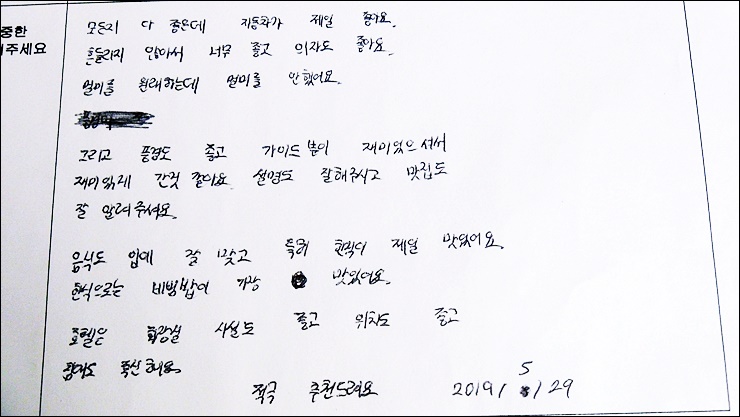 중한
주세요
모든지 다 좋은데 자동차가 제일 좋아요.
흔들리지 않아서 너무 좋고 의자도 좋아요.
멀미를 원래하는데 멀미를 안했어요.
그리고 풍경도 좋고 가이드분이 재미있으셔서
재미있게 간것 같아요 설명도 잘해주시고 맛집도
잘 알려주셔요.
음식도 입에 잘 맞고 특히 한식이 제일 맛있어요.
한식으로는 비빔밥이 가장 맛있어요.
호텔은 화장실 시설도 좋고 위치도 좋고
해요
적극 추천드려요 2019/5/29